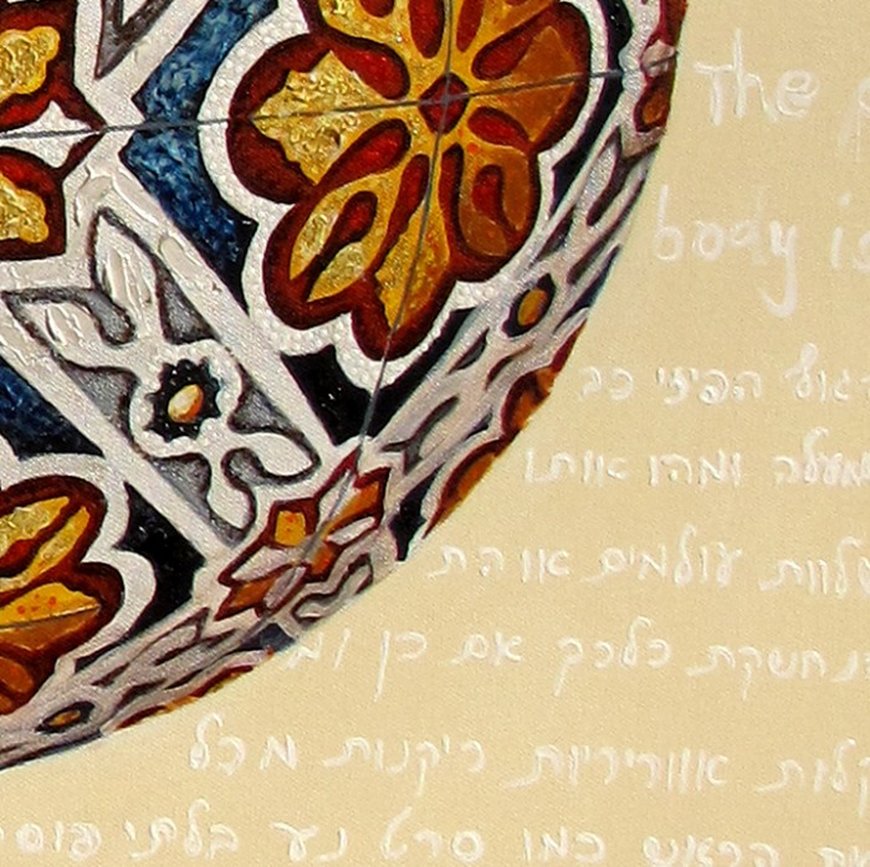 The
body is
הפיזי כב
מעלה ומהו אותו
שלוות עולמים או הת
נחשקת כלכך אם כן ומ
קלות אווריריות ריקנות מכל
הראש כמו סרט נע בלתי